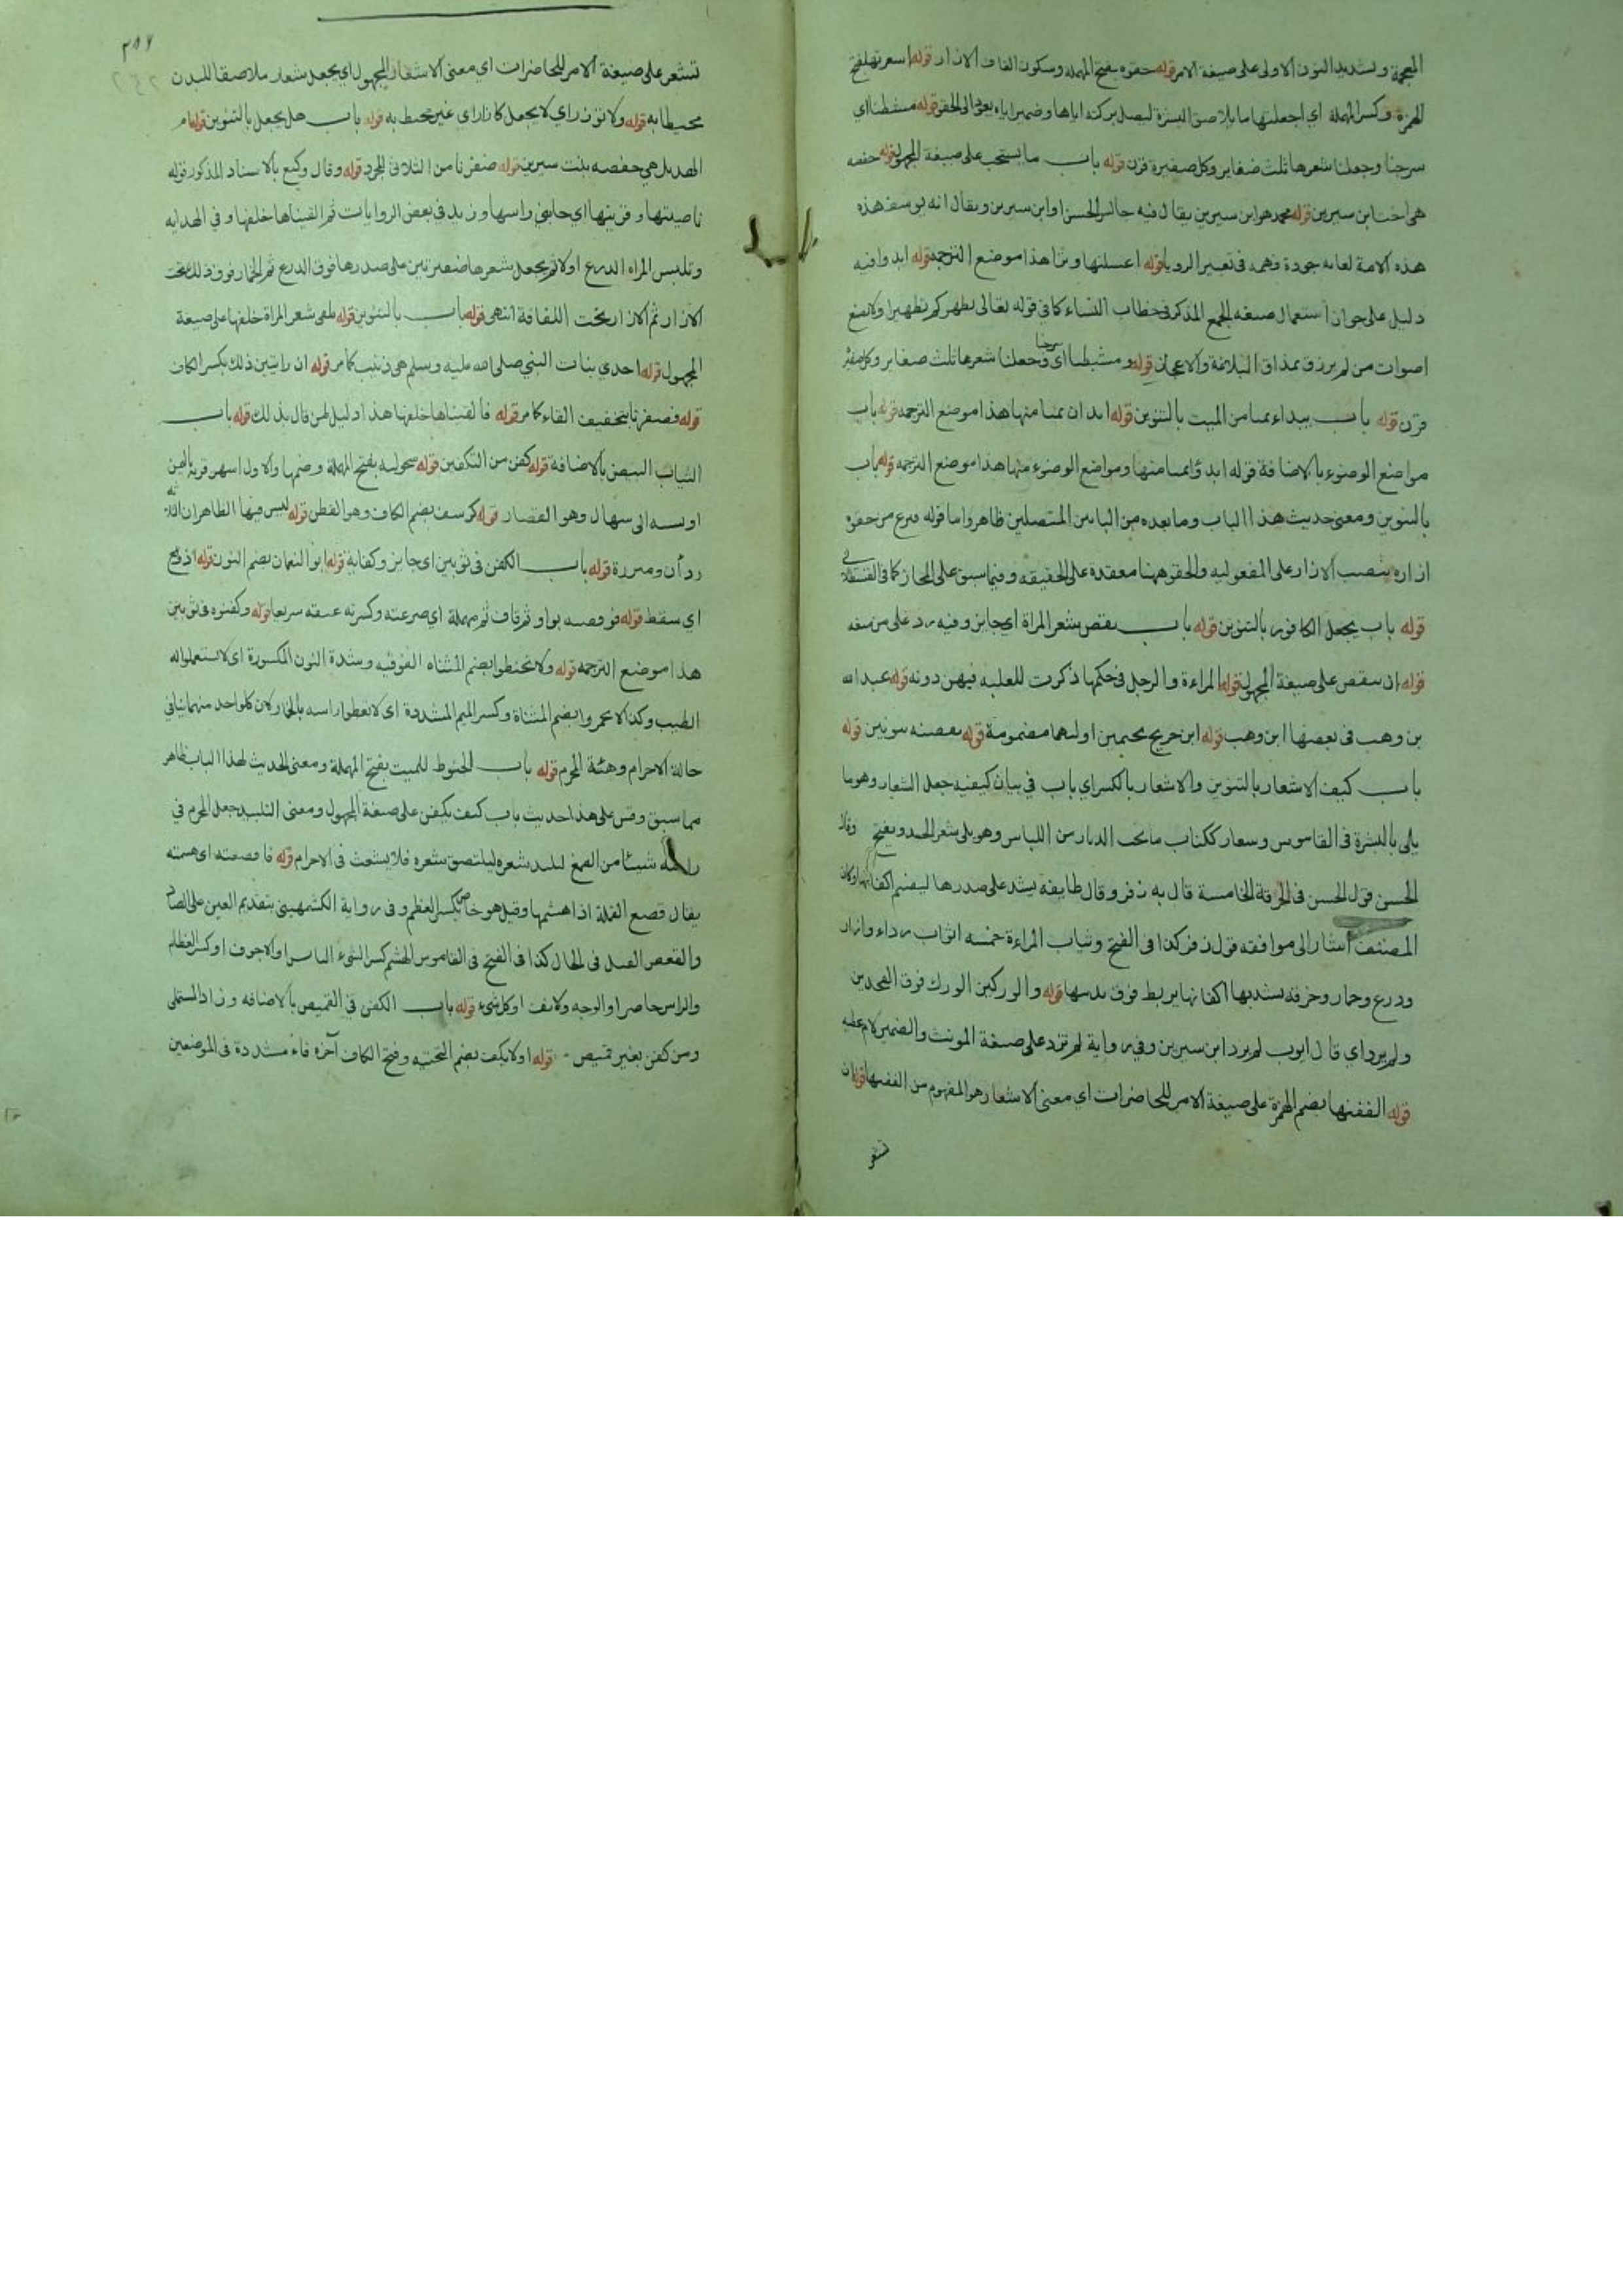 المعجمة وتشديد النون الاولى على صيغة الامر قوله حقوه بفتح المهملة وسكون القاف الازار قوله اشعرنها بفتح
الهمزة وكسر المهملة اي اجعلنها ما يلاصق البشرة ليصل بركته اياها وضمير اياه يعود الى الحقو قوله مشطنا اي
سرحنا وجعلنا شعرها ثلث ضفاير وكل ضفيرة قرن قوله باب ما يستحب على صيغة المجهول قوله حفصه
هي اخت ابن سيرين قوله محمد هو ابن سيرين يقال فيه جالس الحسن او ابن سيرين ويقال انه يوسف هذه
هذه الامة لغاية جودة فهمه في تعبير الرويا قوله اغسلنها وترا هذا موضع الترجمة قوله ابدوا فيه
دليل على جواز استعمال صيغه الجمع المذكر في خطاب النساء كما في قوله تعالى يطهركم تطهيرا ولا تسمع
اصوات من لم يرزق بمذاق البلاغة والاعجاز قوله ومشطنا اي سرحنا وجعلنا شعرها ثلث ضفاير وكل ضفيرة
قرن قوله باب يبداء بميامن الميت بالتنوين قوله ابدان بميامنها هذا موضع الترجمه قوله باب
مواضع الوضوء بالاضافة قوله ابدؤا بميامنها ومواضع الوضوء منها هذا موضع الترجمه قوله باب
بالتنوين ومعنى حديث هذا الباب وما بعده من البابين المتصلين ظاهر واما قوله فنزع من حقوه
ازاره بنصب الازار على المفعوليه والحقو ههنا معقدة على الحقيقه وفيما سبق على المجاز كما في القسطلاني
قوله باب يجعل الكافور بالتنوين قوله باب نقض شعر المراة اي جايز وفيه رد على من منعه
قوله ان ينقض على صيغة المجهول قوله المراءة والرجل في حكمها ذكرت للغلبه فيهن دونه قوله عبد الله
بن وهب في بعضها ابن وهب قوله ابن جريج بجيمين اولهما مضمومة قوله نقضنه بنونين قوله
باب كيف الاشعار بالتنوين والاشعار بالكسر اي باب في بيان كيفيه جعل الشعار وهو ما
يلي بالبشرة في القاموس وشعار ككتاب ما تحت الدثار من اللباس وهو يلي شعر الجسد ويفتح وقال
الحسن قول الحسن في الخرقة الخامسة قال به زفر وقال طايفه يشد على صدرها ليضم اكفانها وكان
المصنف اشار الى موافقه قول زفر كذا في الفتح وثياب المراءة خمسه اثواب رداء وازار
ودرع وخمار وخرقه يشد بها اكفانها يربط فوق يديها قوله والوركين الورك فوق الفخدين
ولم يرد اي قال ايوب لم يرد ابن سيرين وفي رواية لم تزد على صيغة المونث والضمير لام عطيه
قوله الففنها بضم الهمزة على صيغة الامر للحاضرات اي معنى الاشعار هو المفهوم من الففنها قوله ان
تشعر
تشعر على صيغة الامر للحاضرات اي معنى الاشعار المجهول اي يجعل شعار ملاصقا للبدن
محيطا به قوله ولا تؤزر اي لا يجعل كازار اي غير محيط به قوله باب هل يجعل بالتنوين قوله ام
الهذيل هي حفصه بنت سيرين قوله ضفرنا من الثلاثي المجرد قوله وقال وكيع بالاسناد المذكور قوله
ناصيتها وقرنيها اي جانبي راسها وزيد في بعض الروايات ثم القيناها خلفها وفي الهدايه
وتلبس المراه الدرع اولا ثم يجعل شعرها ضفيرتين على صدرها فوق الدرع ثم الخمار فوق ذلك تحت
الازار ثم الازار تحت اللفافة انتهى قوله باب بالتنوين قوله يلقى شعر المراة خلفها على صيغة
المجهول قوله احدي بنات النبي صلى الله عليه وسلم هي زينب كما مر قوله ان رايتين ذلك بكسر الكاف
قوله فضفرنا بتخفيف الفاء كما مر قوله فالقيناها خلفها هذا دليل لمن قال بذلك قوله باب
الثياب البيض بالاضافة قوله كفن من التكفين قوله سحوليه بفتح المهملة وضمها والاول اشهر قرية باليمن
او نسبه الى سحال وهو القصار قوله كرسف بضم الكاف وهو القطن قوله ليس فيها الظاهر ان
ردآن ومئزرة قوله باب الكفن في ثوبين اي جايز وكفاية قوله ابو النعمان بضم النون قوله اذ وقع
اي سقط قوله فوقصه بواو ثم قاف ثم مهملة اي صرعته وكسرته عنقه سريعا قوله وكفنوه في ثوبين
هذا موضع الترجمه قوله ولا تحنطوا بضم المثناه الفوقيه وشدة النون المكسورة اي لا تستعملوا له
الطيب وكذا لا تخمروا بضم المثناة وكسر الميم المشددة اي لا تغطوا راسه بالخمار لان كلواحد منهما ينافي
حالة الاحرام وهئة المحرم قوله باب الحنوط للميت بفتح المهملة ومعنى الحديث لهذا الباب ظاهر
مما سبق وقس على هذا حديث باب كيف يكفن على صيغة المجهول ومعنى التلبيد جعل المحرم في
راسه شيئا من الصمغ لبلبد شعره ليلتصق شعره فلا يشعث في الاحرام قوله فاقصعته اي هشمته
يقال قصع القملة اذا هشمها وقيل هو خاص بكسر العظم وفي رواية الكشمهيني بتقديم العين على الصاد
والقعص القتل في الحال كذا في الفتح في القاموس الهشم كسر الشيء اليابس او الاجوف او كسر العظام
والراس خاصه او الوجه والانف او كل شيء قوله باب الكفن في القميص بالاضافه وزاد المستملي
ومن كفن بغير قميص قوله او لا يكف بضم التحتيه وفتح الكاف آخره فاء مشددة في الموضعين